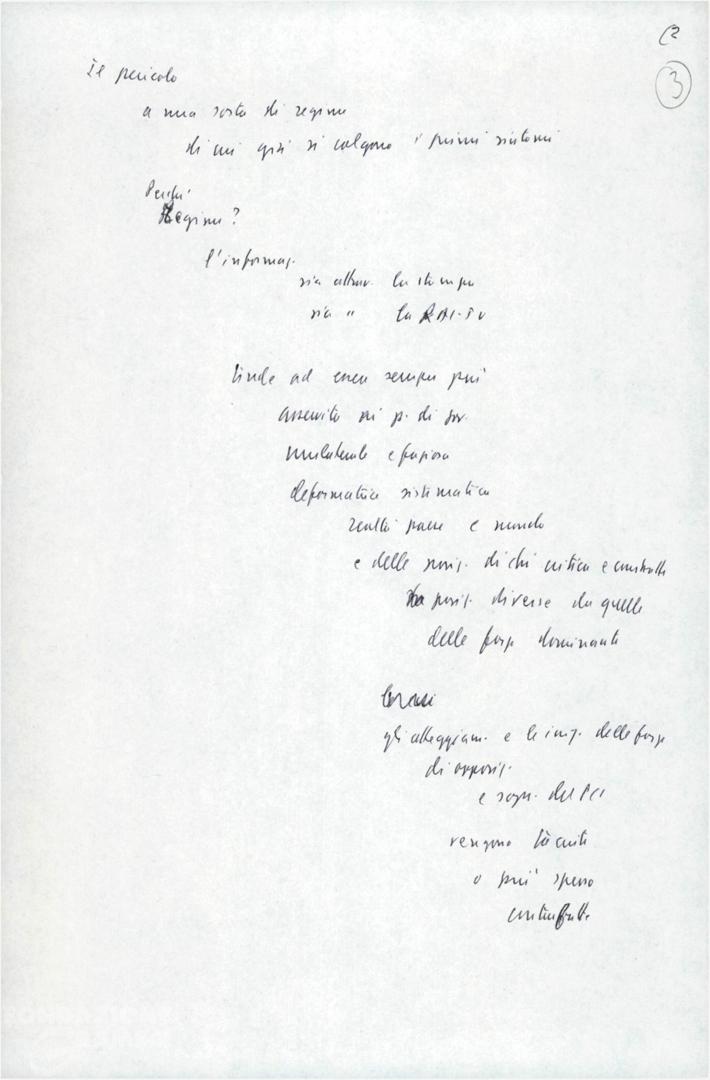 C2
3
Il pericolo
a una sorta di regime
di cui già si colgono i primi sintomi
Perché
Regime?
l'informaz.
sia attrav. la stampa
sia " la RAI-TV
tende ad essere sempre più
asservita ai p. di gov.
unilaterale e faziosa
deformatrice sistematica
realtà paese e mondo
e delle posiz. di chi critica e combatte
ha posiz. diverse da quelle
delle forze dominanti
Così
gli atteggiam. e le iniz. delle forze
di opposiz.
e sopr. del PCI
vengono taciuti
o più spesso
contraffatte